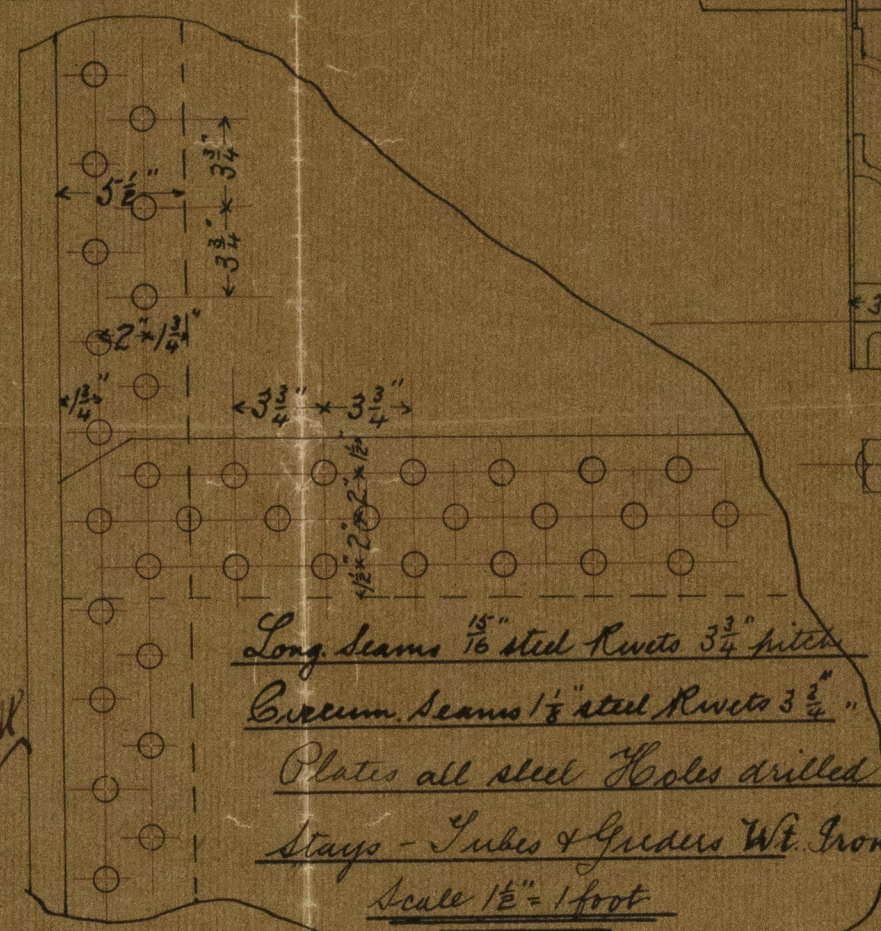 5 1/2"
3 3/4"
3 3/4"
2" 1 3/4"
1 3/4"
3 3/4" 3 3/4"
1 1/2" 2" 2" 1 1/2"
3
Long. Seams 15/16" steel Rivets 3 3/4" pitch
Circum. Seams 1 1/8" steel Rivets 3 3/4" "
Plates all steel Holes drilled
Stays - Tubes & Girders Wt. Iron
Scale 1 1/2" = 1 foot